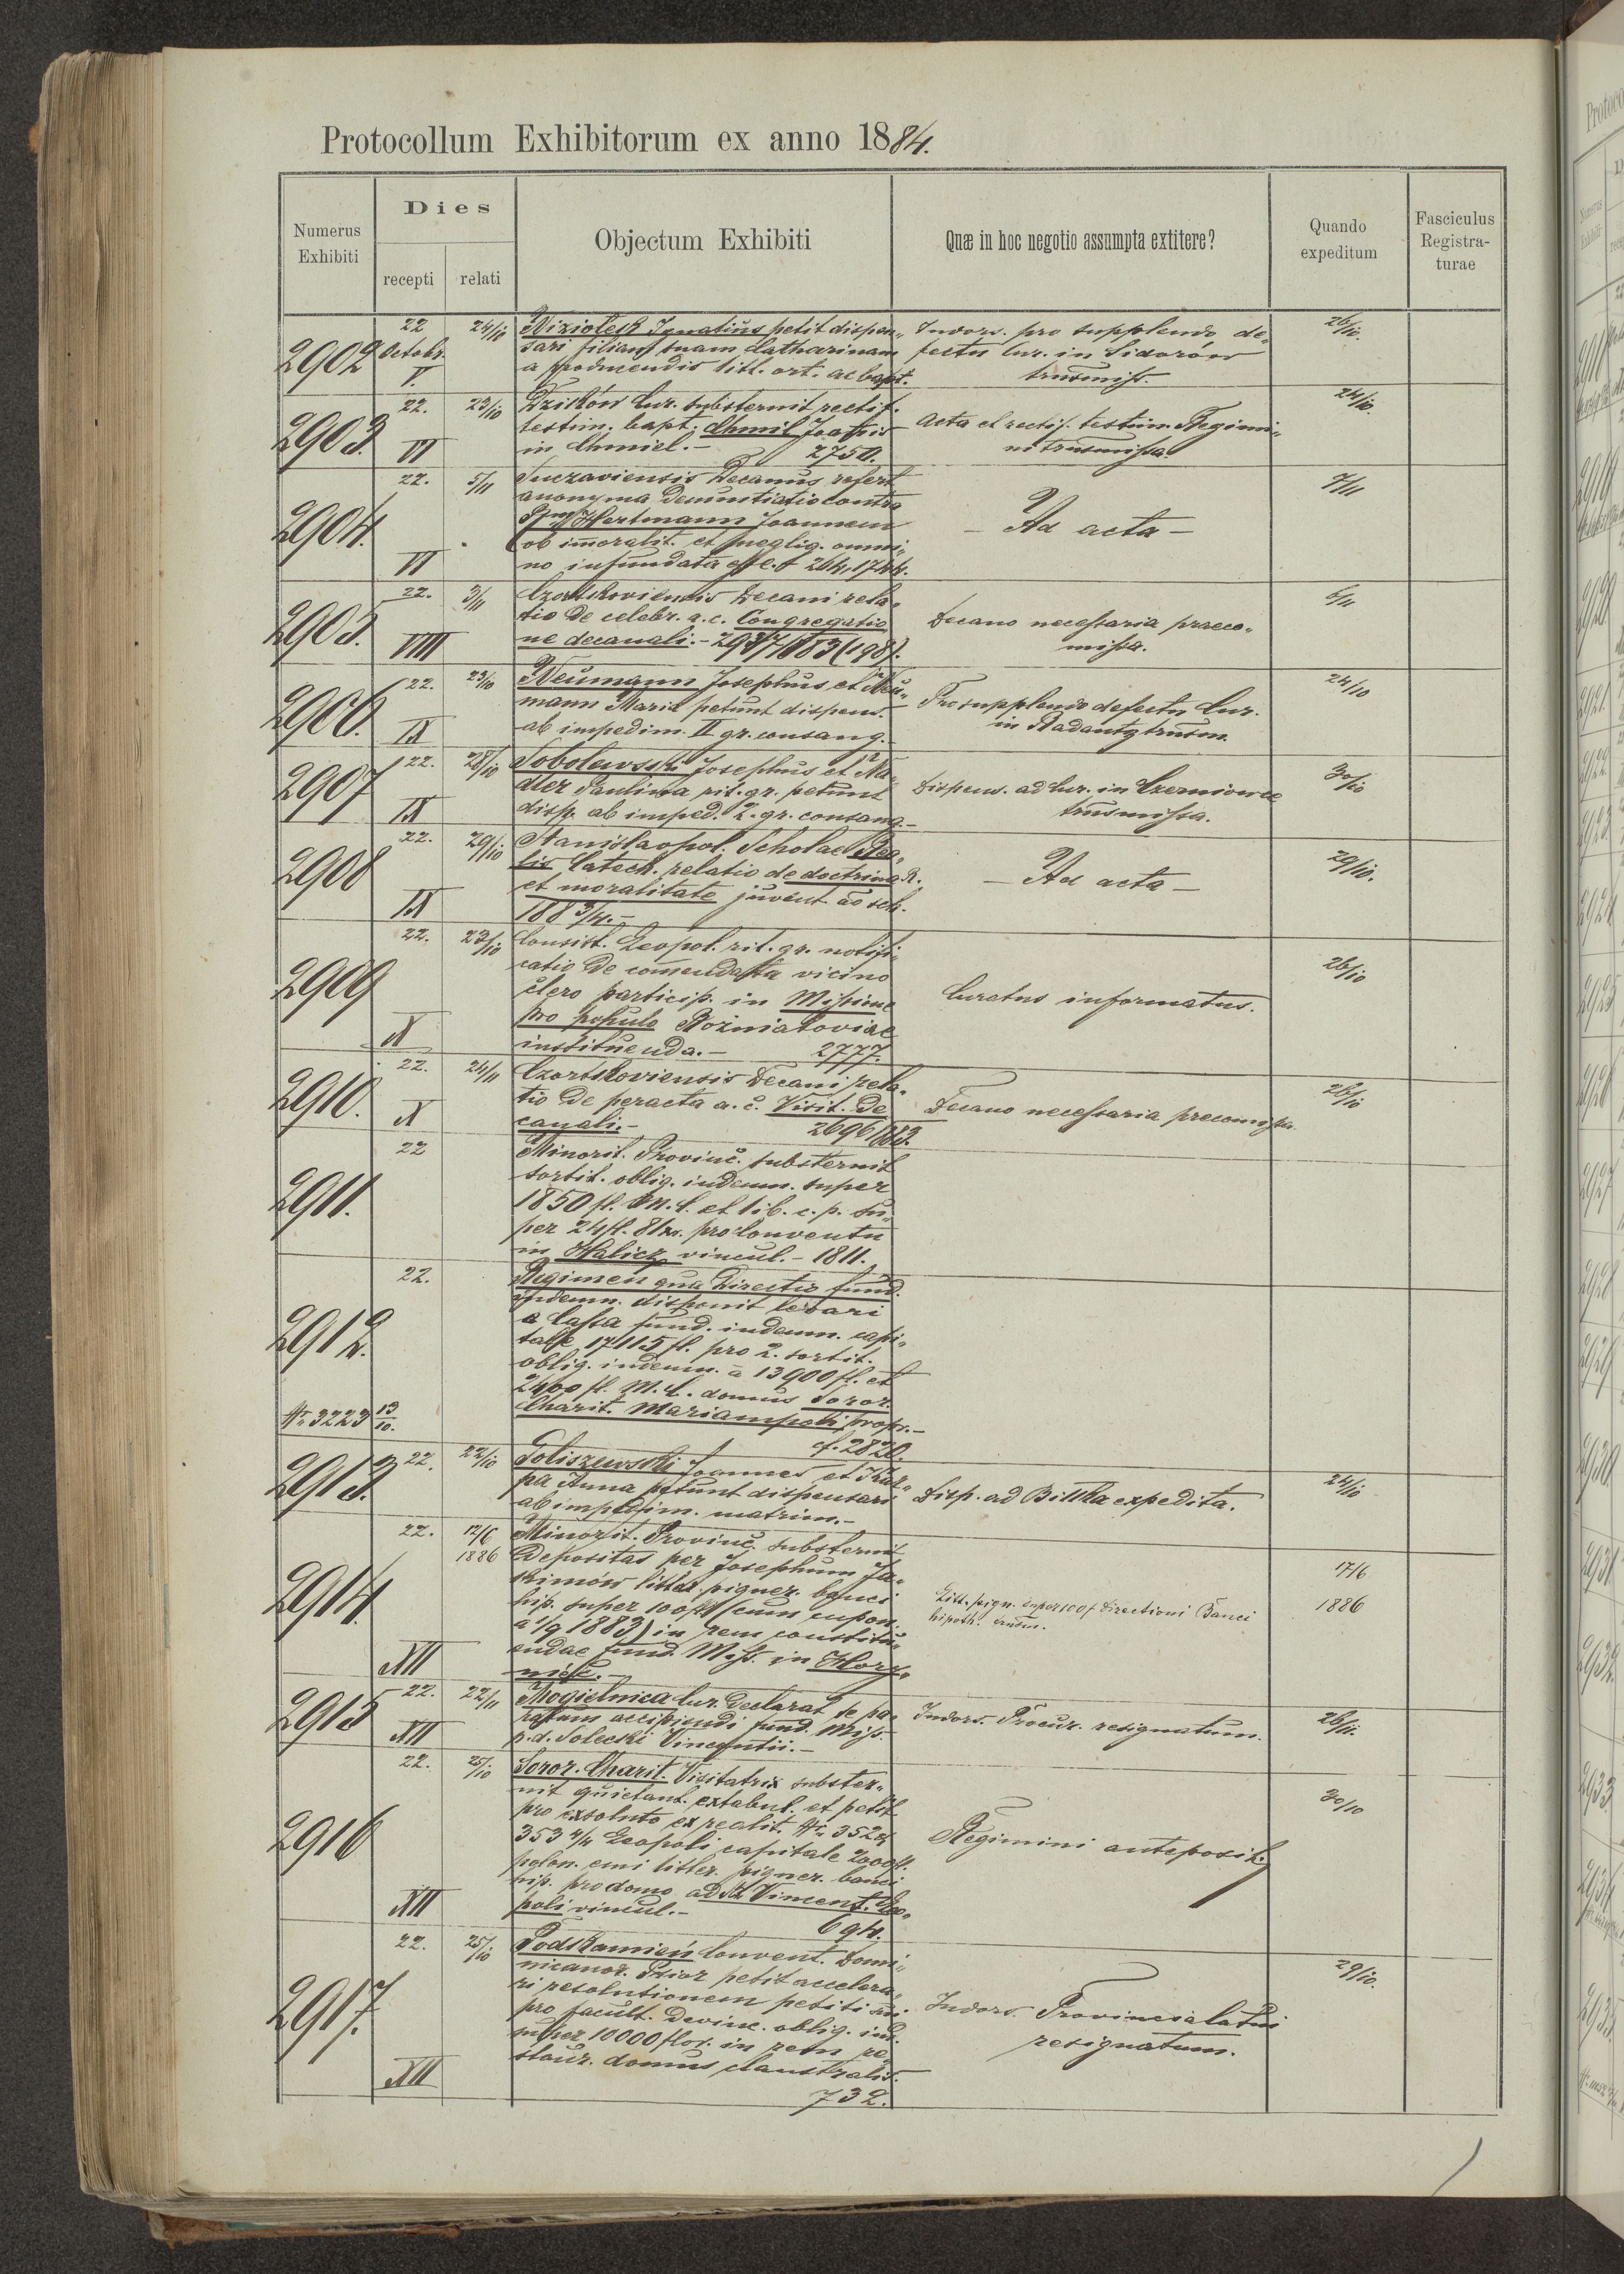 Protocollum Exhibitorum ex anno 1884.
Numerus Exhibiti
Dies
recepti relati
Objectum Exhibiti
Quæ in hoc negotio assumpta extitere?
Quando expeditum
Fasciculus Registra-turae
2902 22 Octobr. V. 24/10
Niziołek Ignatius petit dispen„
sari filiam suam Catharinam
a producendis litt. ort. ac bapt.
Indors. pro supplendo de„
fectu Cur. in Sidorów
trnsmiss.
26/10.
2903. 22. VI 23/10
Dzików Cur. substernit rectif.
testim. bapt. Chmil Joannis
in Chmiel.– 2750.
Acta et rectif. testim. Regimi„
ni trnsmissa.
24/10.
2904. 22. VI 5/11
Suczaviensis Decanus refert
anonyma denuntiatio contra
Hertmann Joannem
ob im̄oralit. et neglig. omni„
no infundata esse. 1744.
– Ad acta –
7/11
2905. 22. VIII 3/11
Czortkoviensis Decani rela„
tio de celebr. a. c. Congregatio
ne decanali.– 2937/1883 (198).
Decano necessaria praeco„
missa.
6/11
2906. 22. IX 23/10
Neumann Josephus et Neu„
mann Maria petunt dispens.
ab impedim. II gr. consang.–
Pro supplendo defectu Cur.
in Radautz trnsm.
24/10
2907 22. IX 28/10
Sobolewski Josephus et Na„
dler Paulina rit. gr. petunt
disp. ab imped. 2. gr. consang.–
Dispens. ad Cur. in Czerniowce
trnsmissa.
30/10
2908 22. IX 29/10
Stanislaopol. Scholae Rea„
lis Catech. relatio de doctrina R.
et moralitate juvent. ao sch.
1883/4.–
– Ad acta –
29/10.
2909 22. X 23/10
Consist. Leopol. rit. gr. notifi„
catio de com̄endata vicino
clero particip. in Missione
pro populo Rożniatoviae
instituenda.– 2777.
Curatus informatus.
26/10
2910. 22. X 24/11
Czortkoviensis Decani rela„
tio de peracta a. c. Visit. de
canali.– 2696/883.
Decano necessaria precomissa.
26/10
2911. 22
Minorit. Provinc. substernit
sortit. oblig. indemn. super
1850 fl. M. C. et lib. c. p. su„
per 24 fl. 81 xr. pro Conventu
in Halicz vincul.– 1811.
2912. 22.
Regimen qua Directio fund.
indemn. disponit levari
a Cassa fund. indemn. capi„
tale 17115 fl. pro 2. sortit.
oblig. indemn. à 13900 fl. et
2400 fl. M. C. domus Soror.
Charit. Mariampoli propr.–
cf. 2820.
Nr. 3223 13/10.
2913. 22. 22/10
Goliszewski Joannes et Kar„
pa Anna petunt dispensari
ab impedim. matrim.–
Disp. ad Bilka expedita.
24/10
2914. 22. XII 12/6 1886
Minorit. Provinc. substernit
depositas per Josephum Ja„
kimów litter. pigner. banci
hip. super 100 fl. (cum cupon.
à 1/9 1883) in rem constitu„
endae fund. Miss. in Hory„
niec.–
Litt. pign. super 100 f Directioni Banci
hipoth. trnsm.
17/6
1886
2915 22. XII 22/11
Mogielnica Cur. declarat se pa„
ratum accipiendi fund. Miss.
p. d. Solecki Vincentii.–
Indors. Procur. resignatum.
26/11.
2916 22. XII 25/10
Soror. Charit. Visitatrix subster„
nit quietant. extabul. et petit
pro exsoluto ex realit. Nr. 352 et
353 4/4 Leopoli capitale 2000 fl.
polon. emi litter. pigner. banci
hip. pro domo ad St. Vincent. Leo„
poli vincul.– 694.
Regimini anteposit.
30/10
2917. 22. XII 25/10
Podkamień Convent. Domi„
nicanor. Prior petit accelera„
ri resolutionem petiti sui
pro facult. devinc. oblig. ind.
super 10000 flor. in rem re„
staur. domus claustralis.
732.
Indors. Provincialatui
resignatum.
29/10.